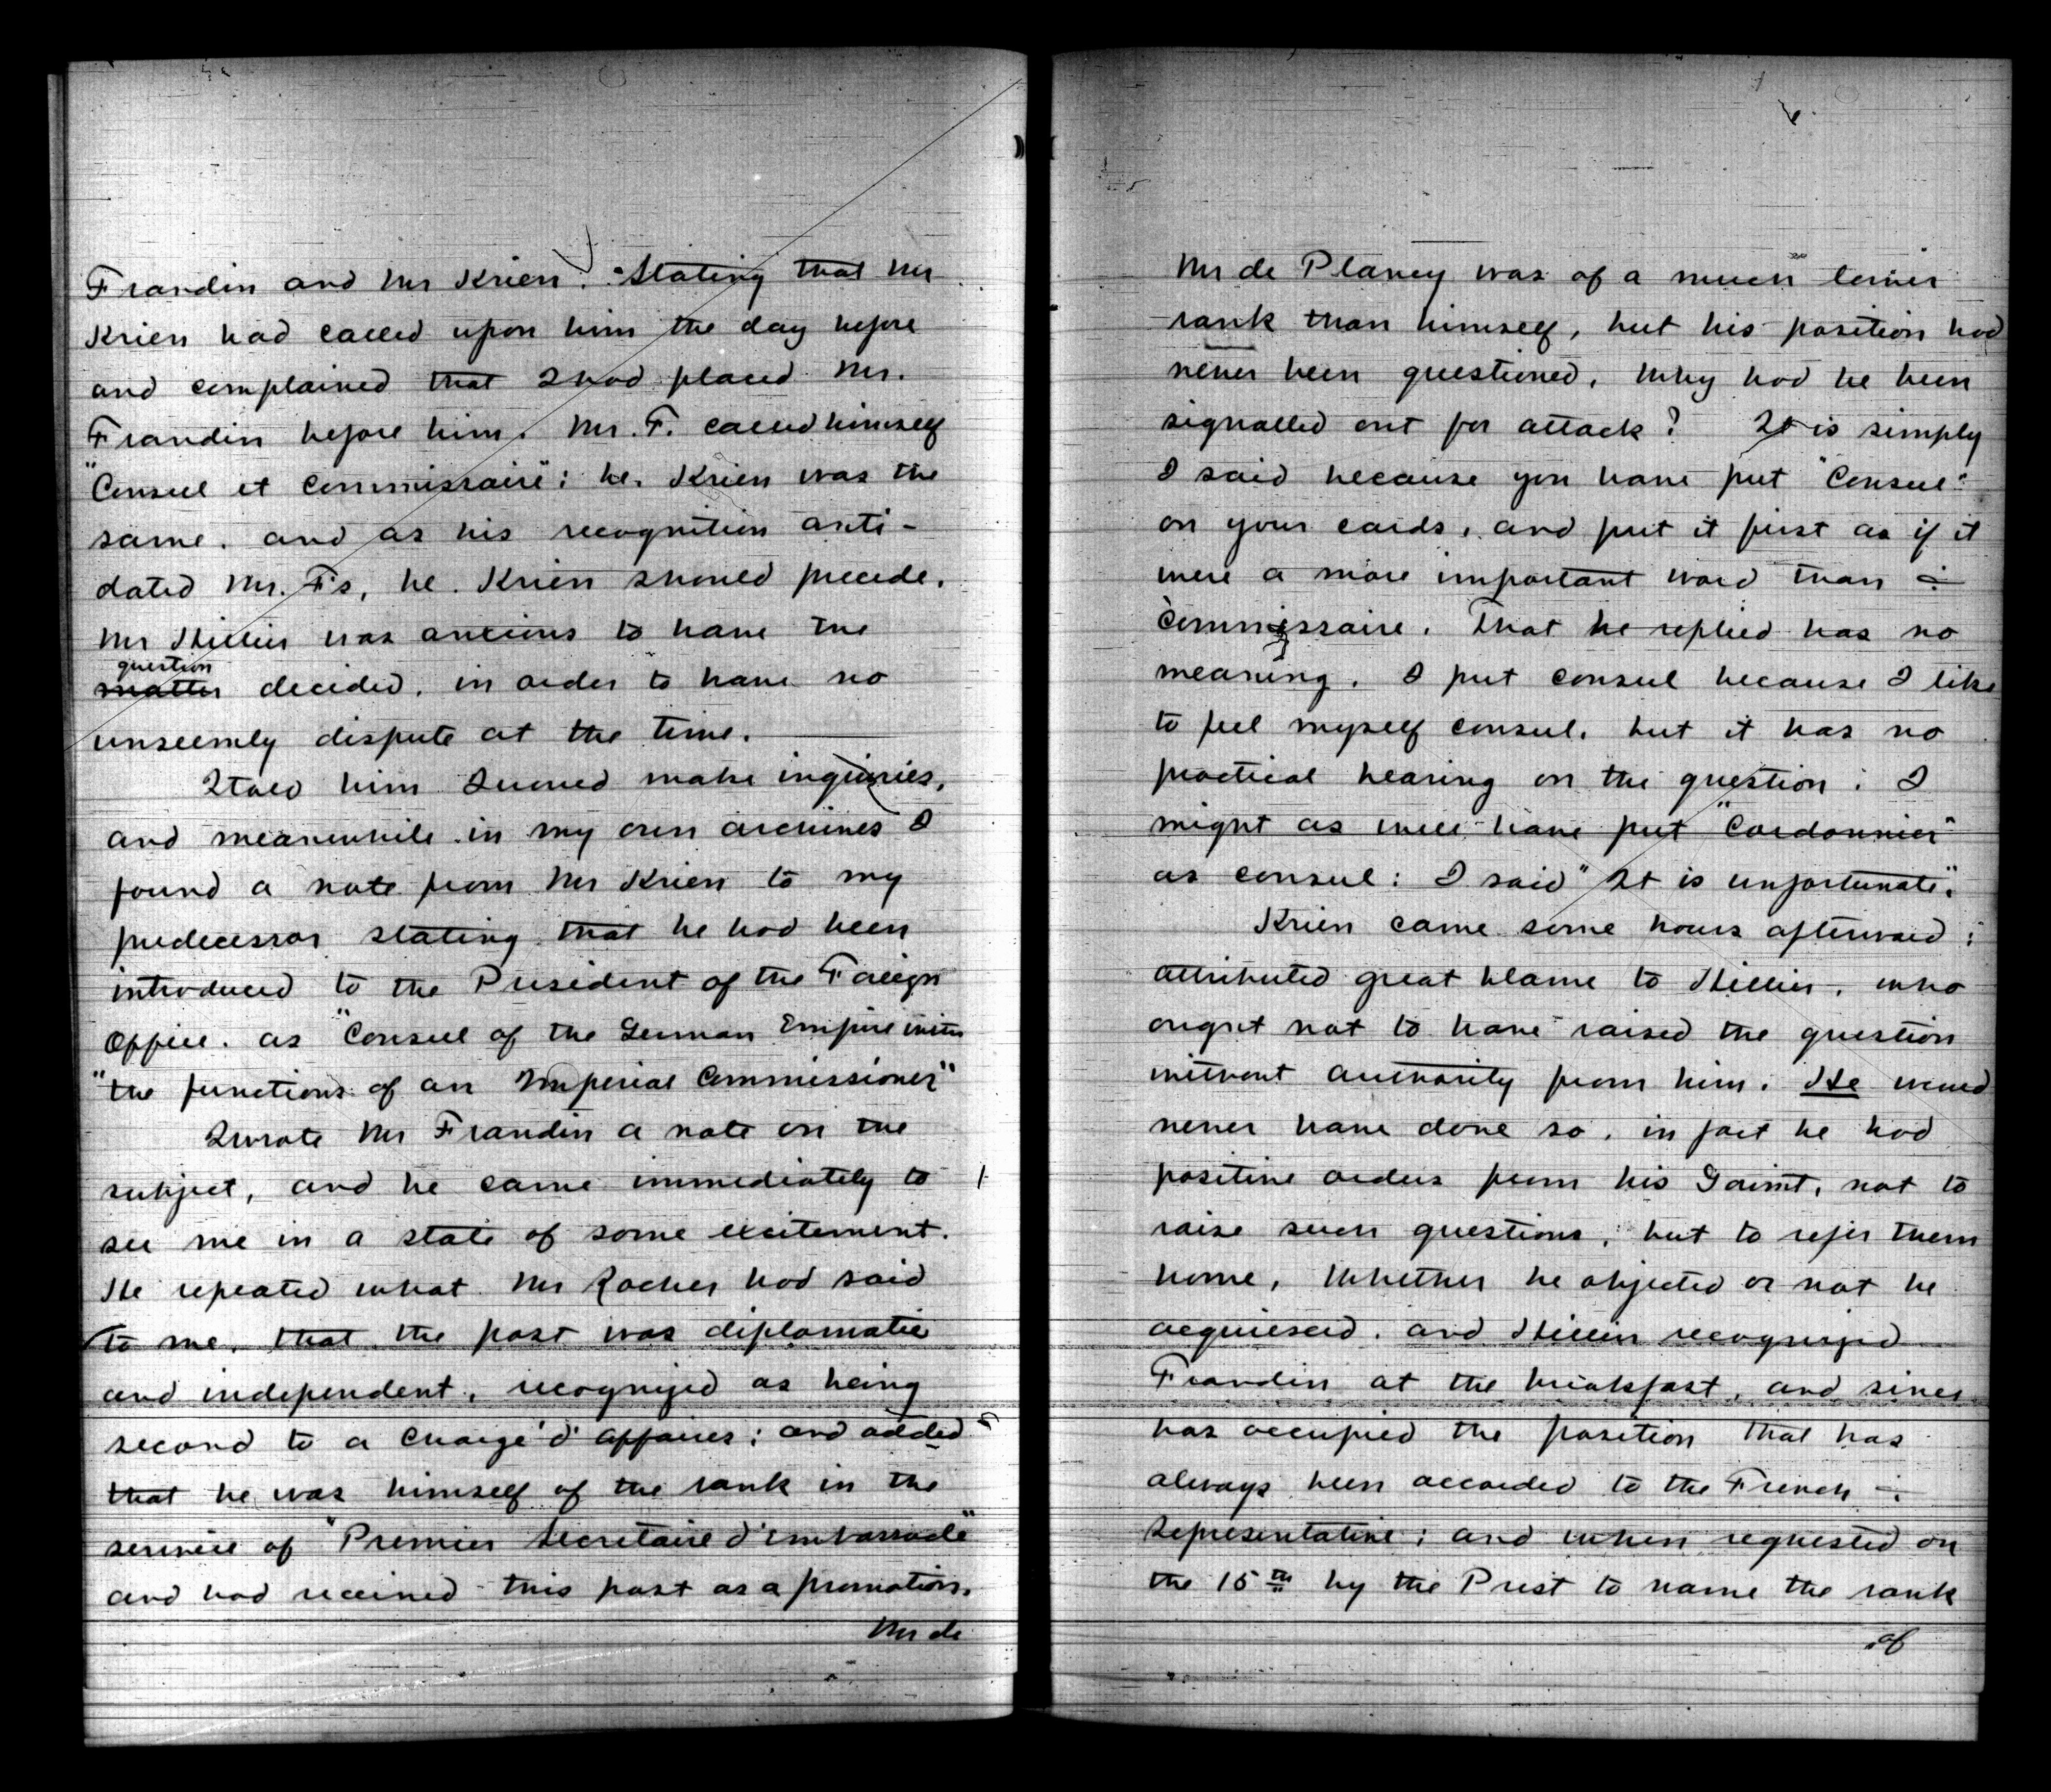 Frandin and Mr Krien. Stating that Mr
Krien had called upon him the day before
and complained that I had placed Mr.
Frandin before him. Mr. F. called himself
"Consul et Commissaire"; he. Krien was the
same. and as his recognition anti-
dated Mr. F's, he. Krien should precede.
Mr Hillier was anxious to have the
question
matter decided. in order to have no
unseemly dispute at the time.
I told him I would make inquiries,
and meanwhile in my own archives I
found a note from Mr Krien to my
predecessor stating that he had been
introduced to the President of the Foreign
Office. as "Consul of the German Empire with
"the functions of an Imperial Commissioner"
I wrote Mr Frandin a note on the
subject, and he came immediately to
see me in a state of some excitement.
He repeated what Mr Rocher had said
to me, that the post was diplomatic
and independent, recognized as being
second to a Chargé d'affaires; and added
that he was himself of the rank in the
service of "Premier Secretaire d'Embassade"
and had received this post as a promotion.
Mr de
Mr de Plancy was of a much lower
rank than himself, but his position had
never been questioned. Why had he been
signalled out for attack? It is simply
I said because you have put "Consul"
on your cards, and put it first as if it
were a more important word than
Commissaire. That he replied has no
meaning. I put consul because I like
to feel myself consul. but it has no
practical bearing on the question: I
might as well have put "Cordonnier"
as consul: I said "It is unfortunate".
Krien came some hours afterward:
attributed great blame to Hillier, who
ought not to have raised the question
without authority from him. He would
never have done so. in fact he had
positive orders from his Govmt, not to
raise such questions, but to refer them
home. Whether he objected or not he
acquiesced. and Hillier recognized
Frandin at the breakfast, and since
has occupied the position that has
always been accorded to the French
Representative; and when requested on
the 15th by the Prest to name the rank
of